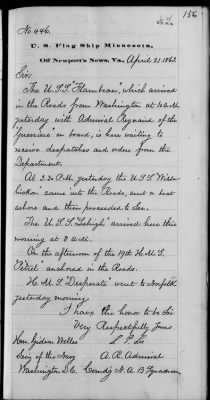 156
No 446.
U. S. Flag Ship Minnesota,
Off Newport's News, Va., April 21 1863
Sir:
The U.S.S. "Flambeau", which arrived
in the Roads from Washington at 10 A.M
yesterday with Admiral Reynaud of the
"Guerriere" on board, is here waiting to
receive despatches and orders from the
Department.
At 3.20 P.M. yesterday the U.S.S. "Wissa-
hickon" came into the Roads, sent a boat
ashore and then proceeded to Sea.
The U.S.S. "Lehigh" arrived here this
morning at 8 A.M.
On the afternoon of the 19th H.M.S.
"Petrel" anchored in the Roads.
H.M.S. "Desperate" went to Norfolk
yesterday morning
I have the honor to be Sir
Very Respectfully Yours
Hon. Gideon Welles S. P. Lee
Secy of the Navy A. R. Admiral
Washington D.C. Comdg N. A. B. Squadron